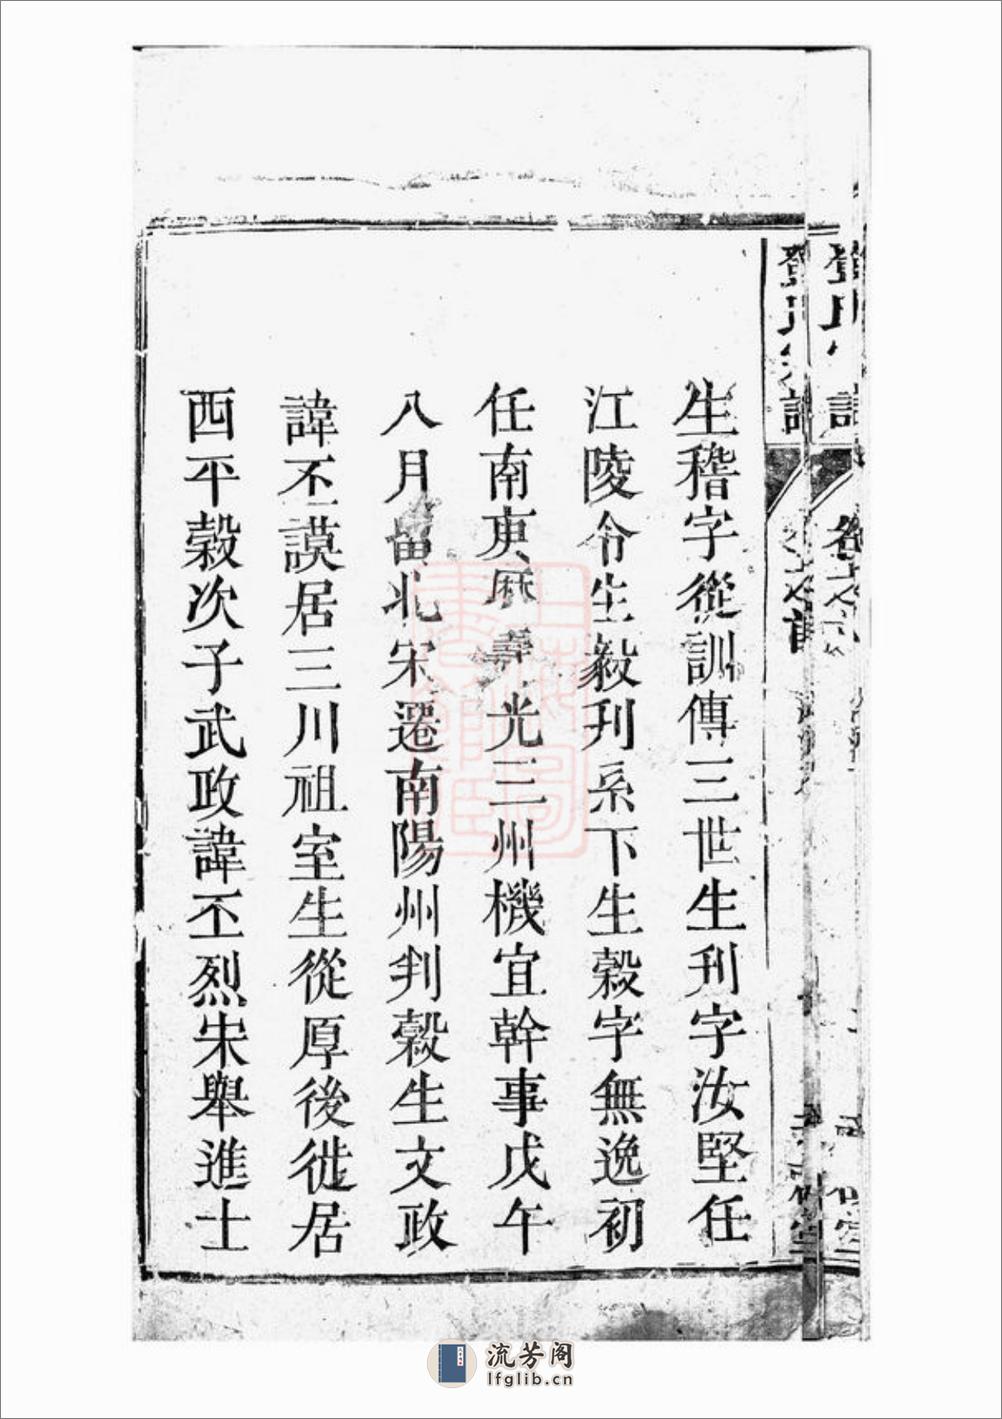 生稽字從訓傳三世生刋字汝堅任
江陵令生毅刋系下生穀字無逸初
任南庚麻壽光三州機宜幹事戊午
八月留北宋遷南陽州判穀生文政
諱不謨居三川祖室生從厚後徙居
西平穀次子武政諱丕烈宋舉進士
流芳阁
lfglib.cn